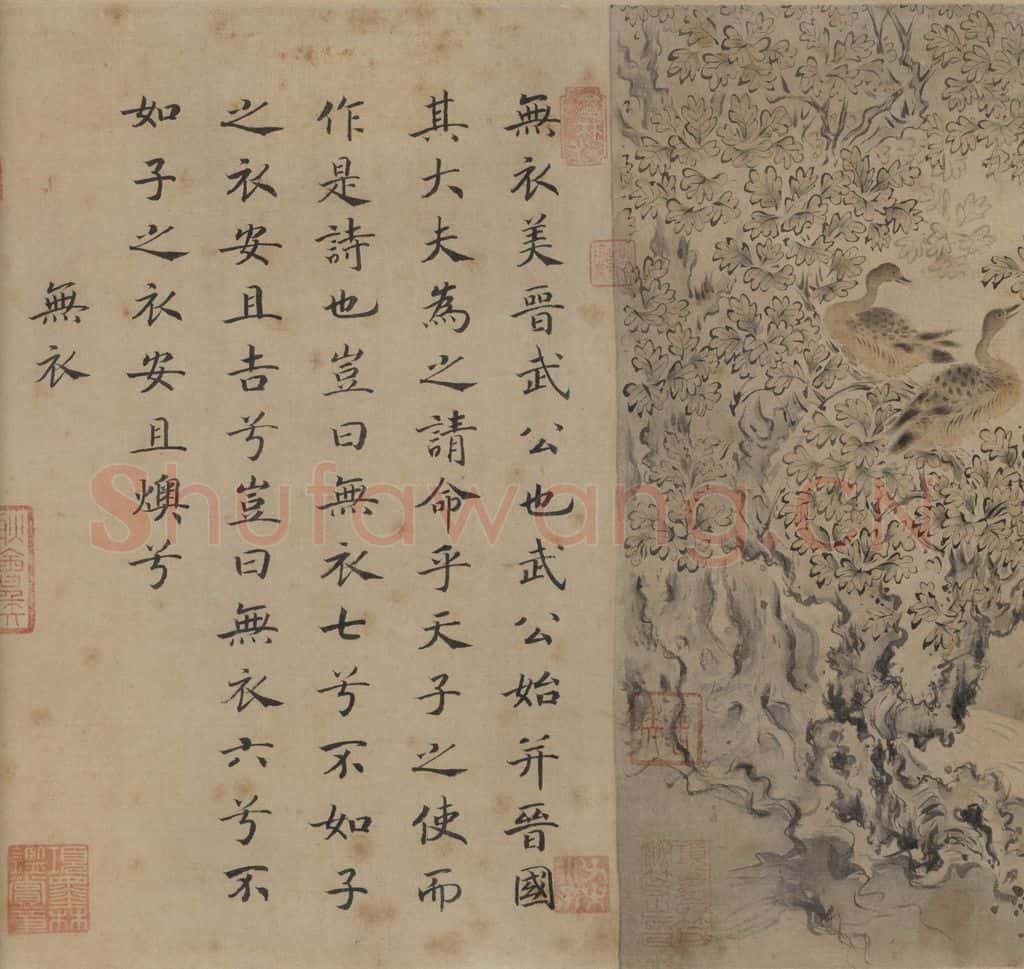 無衣美晉武公也武公始并晉國
其大夫為之請命乎天子之使而
作是詩也豈曰無衣七兮不如子
之衣安且吉兮豈曰無衣六兮不
如子之衣安且燠兮
無衣
Shufawang.CN